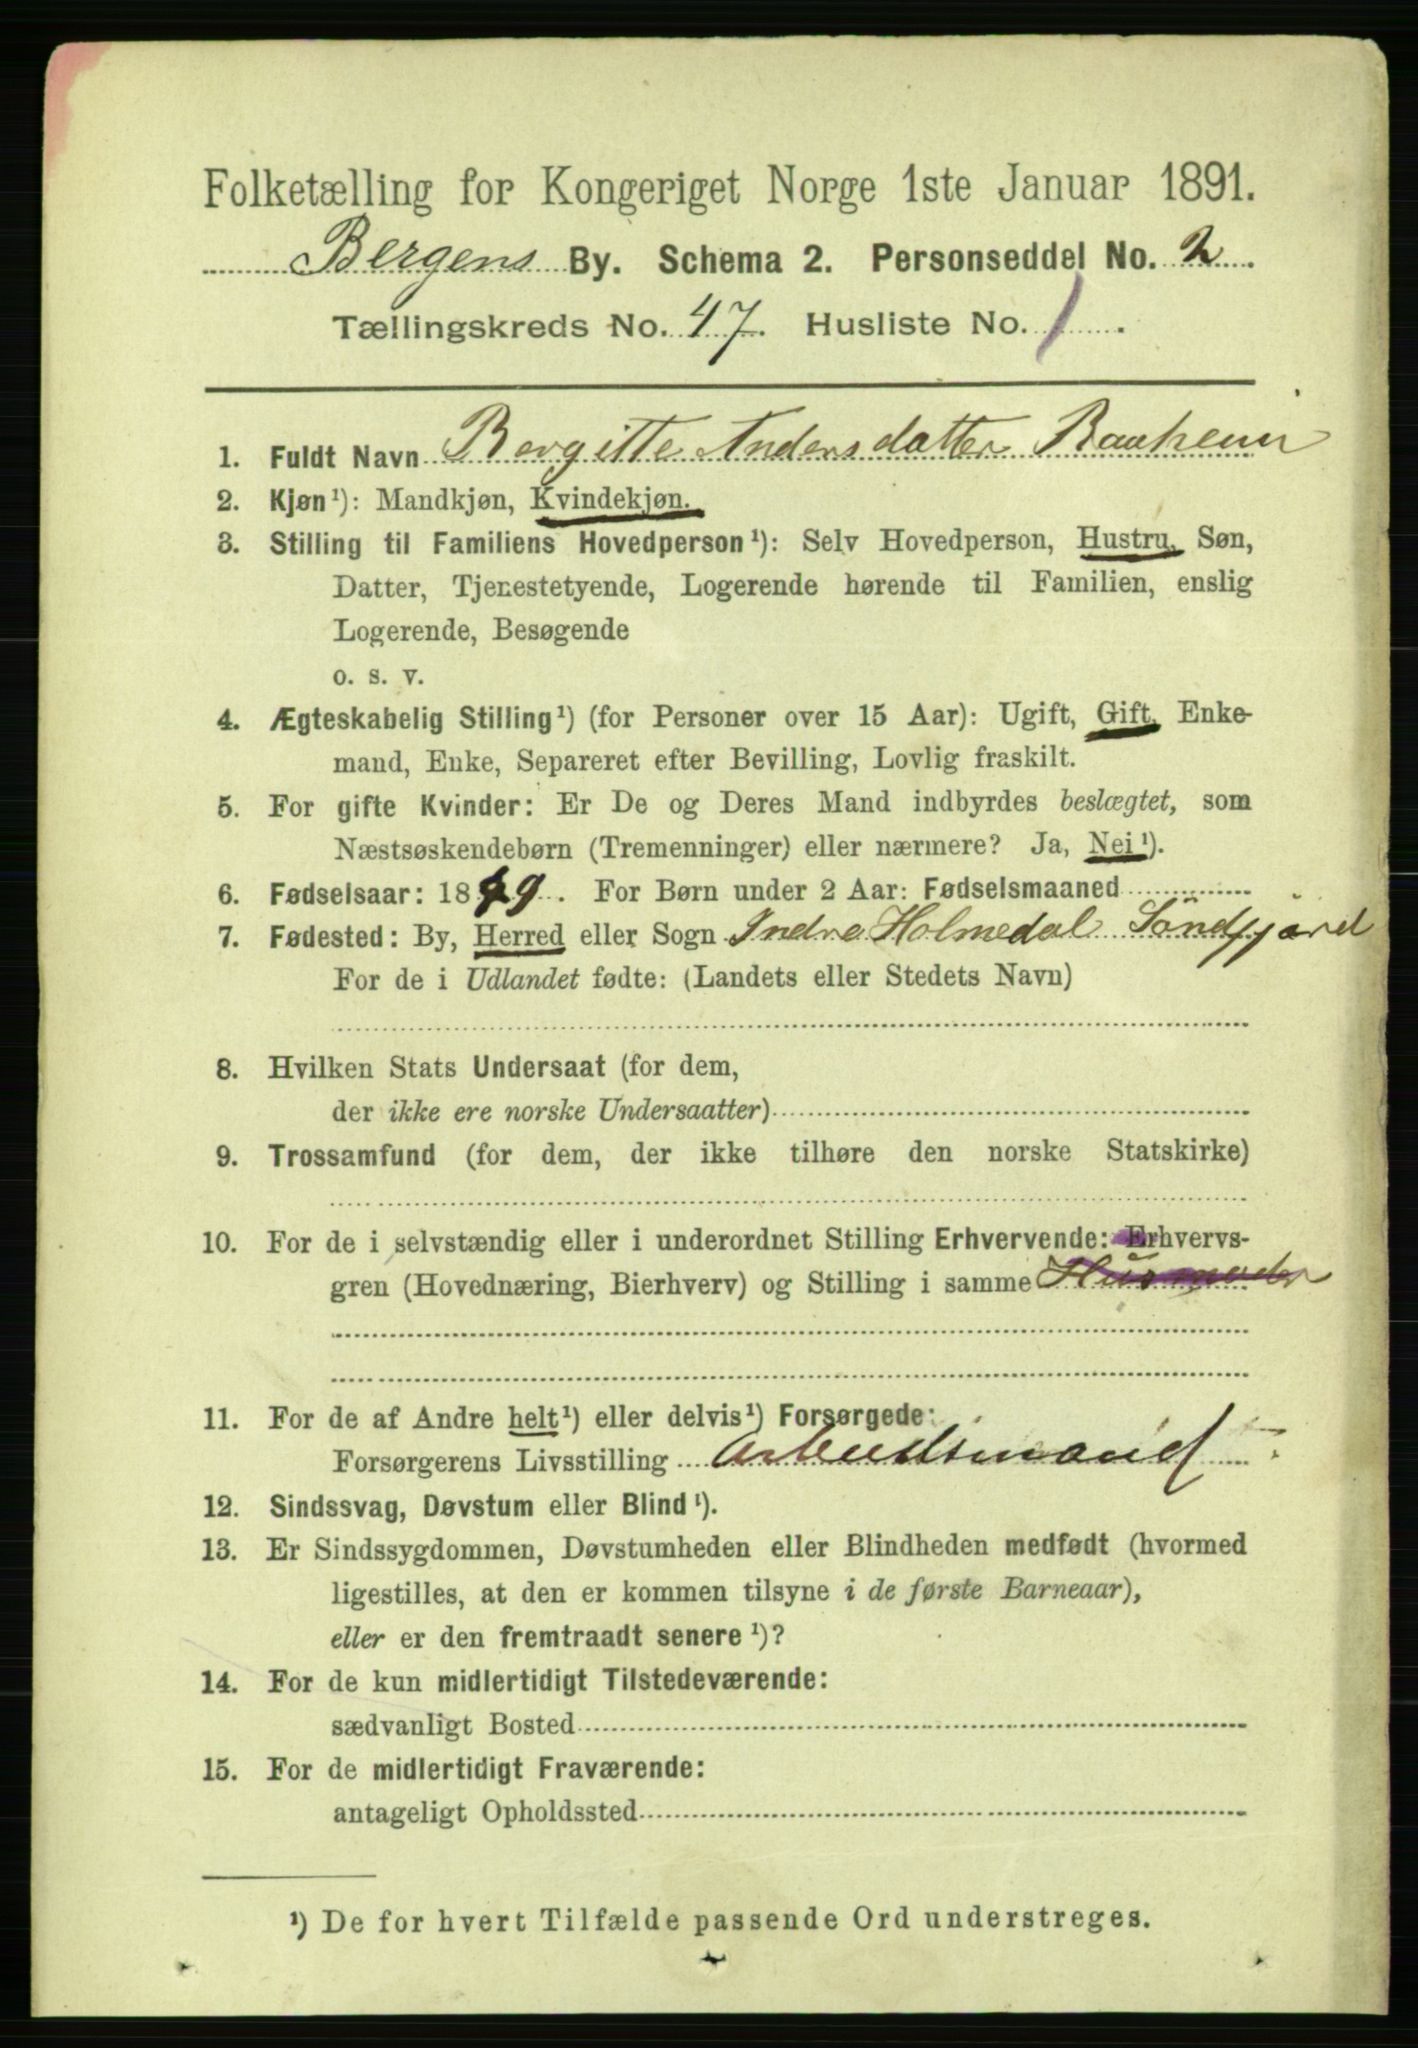 Folketælling for Kongeriget Norge 1ste Januar 1891.
Bergens By. Schema 2. Personseddel No. 2.
Tællingskreds No. 47. Husliste No. 1.
1. Fuldt Navn Bergitte Andersdatter
2. Kjøn¹): Mandkjøn, Kvindekjøn.
3. Stilling til Familiens Hovedperson¹): Selv Hovedperson, Hustru, Søn,
Datter, Tjenestetyende, Logerende hørende til Familien, enslig
Logerende, Besøgende
o. s. v.
4. Ægteskabelig Stilling¹) (for Personer over 15 Aar): Ugift, Gift, Enke-
mand, Enke, Separeret efter Bevilling, Lovlig fraskilt.
5. For gifte Kvinder: Er De og Deres Mand indbyrdes beslægtet, som
Næstsøskendebørn (Tremenninger) eller nærmere? Ja, Nei¹).
6. Fødselsaar: 18 9. For Børn under 2 Aar: Fødselsmaaned
7. Fødested: By, Herred eller Sogn Indre Holmedal Söndfjord
For de i Udlandet fødte: (Landets eller Stedets Navn)
8. Hvilken Stats Undersaat (for dem,
der ikke ere norske Undersaatter)
9. Trossamfund (for dem, der ikke tilhøre den norske Statskirke)
10. For de i selvstændig eller i underordnet Stilling Erhvervende: Erhvervs-
gren (Hovednæring, Bierhverv) og Stilling i samme Husmoder
11. For de af Andre helt¹) eller delvis¹) Forsørgede:
Forsørgerens Livsstilling Arbeidsmand
12. Sindssvag, Døvstum eller Blind¹).
13. Er Sindssygdommen, Døvstumheden eller Blindheden medfødt (hvormed
ligestilles, at den er kommen tilsyne i de første Barneaar),
eller er den fremtraadt senere¹)?
14. For de kun midlertidigt Tilstedeværende:
sædvanligt Bosted
15. For de midlertidigt Fraværende:
antageligt Opholdssted
¹) De for hvert Tilfælde passende Ord understreges.